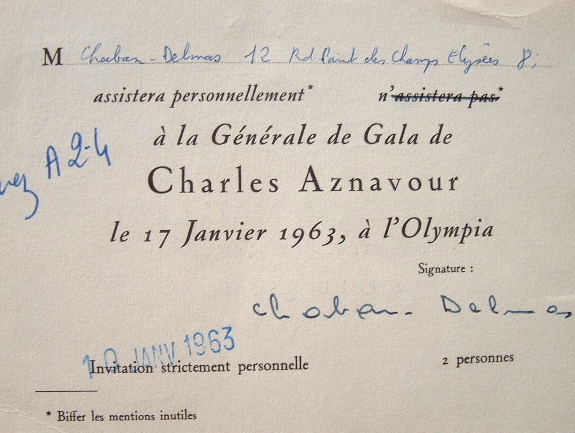 M Chaban-Delmas 12 Rd Point des Champs Elysées 8;
assistera personnellement* n'assistera pas.*
A 2-4
à la Générale de Gala de
Charles Aznavour
le 17 Janvier 1963, à l'Olympia
Signature :
Chaban-Delmas
10 JANV 1963
Invitation strictement personnelle 2 personnes
* Biffer les mentions inutiles